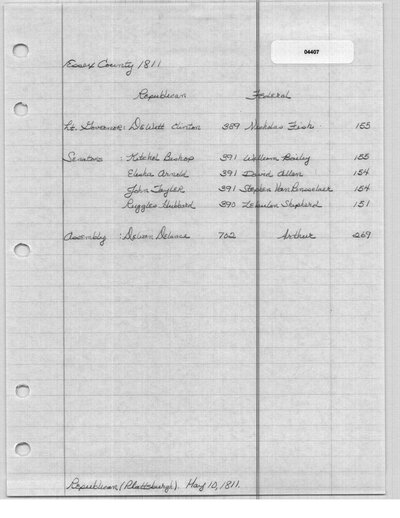 04407
Essex County 1811
Republican Federal
Lt. Governor: DeWitt Clinton 389 Nicholas Fish 155
Senators : Kitchel Bishop 391 William Bailey 155
Elisha Arnold 391 David Allen 154
John Tayler 391 Stephen Van Rensselaer 154
Ruggles Hubbard 390 Zebulon Shipherd 151
Assembly : Delavan Delance 702 Arthur 269
Republican (Plattsburgh). May 10, 1811.